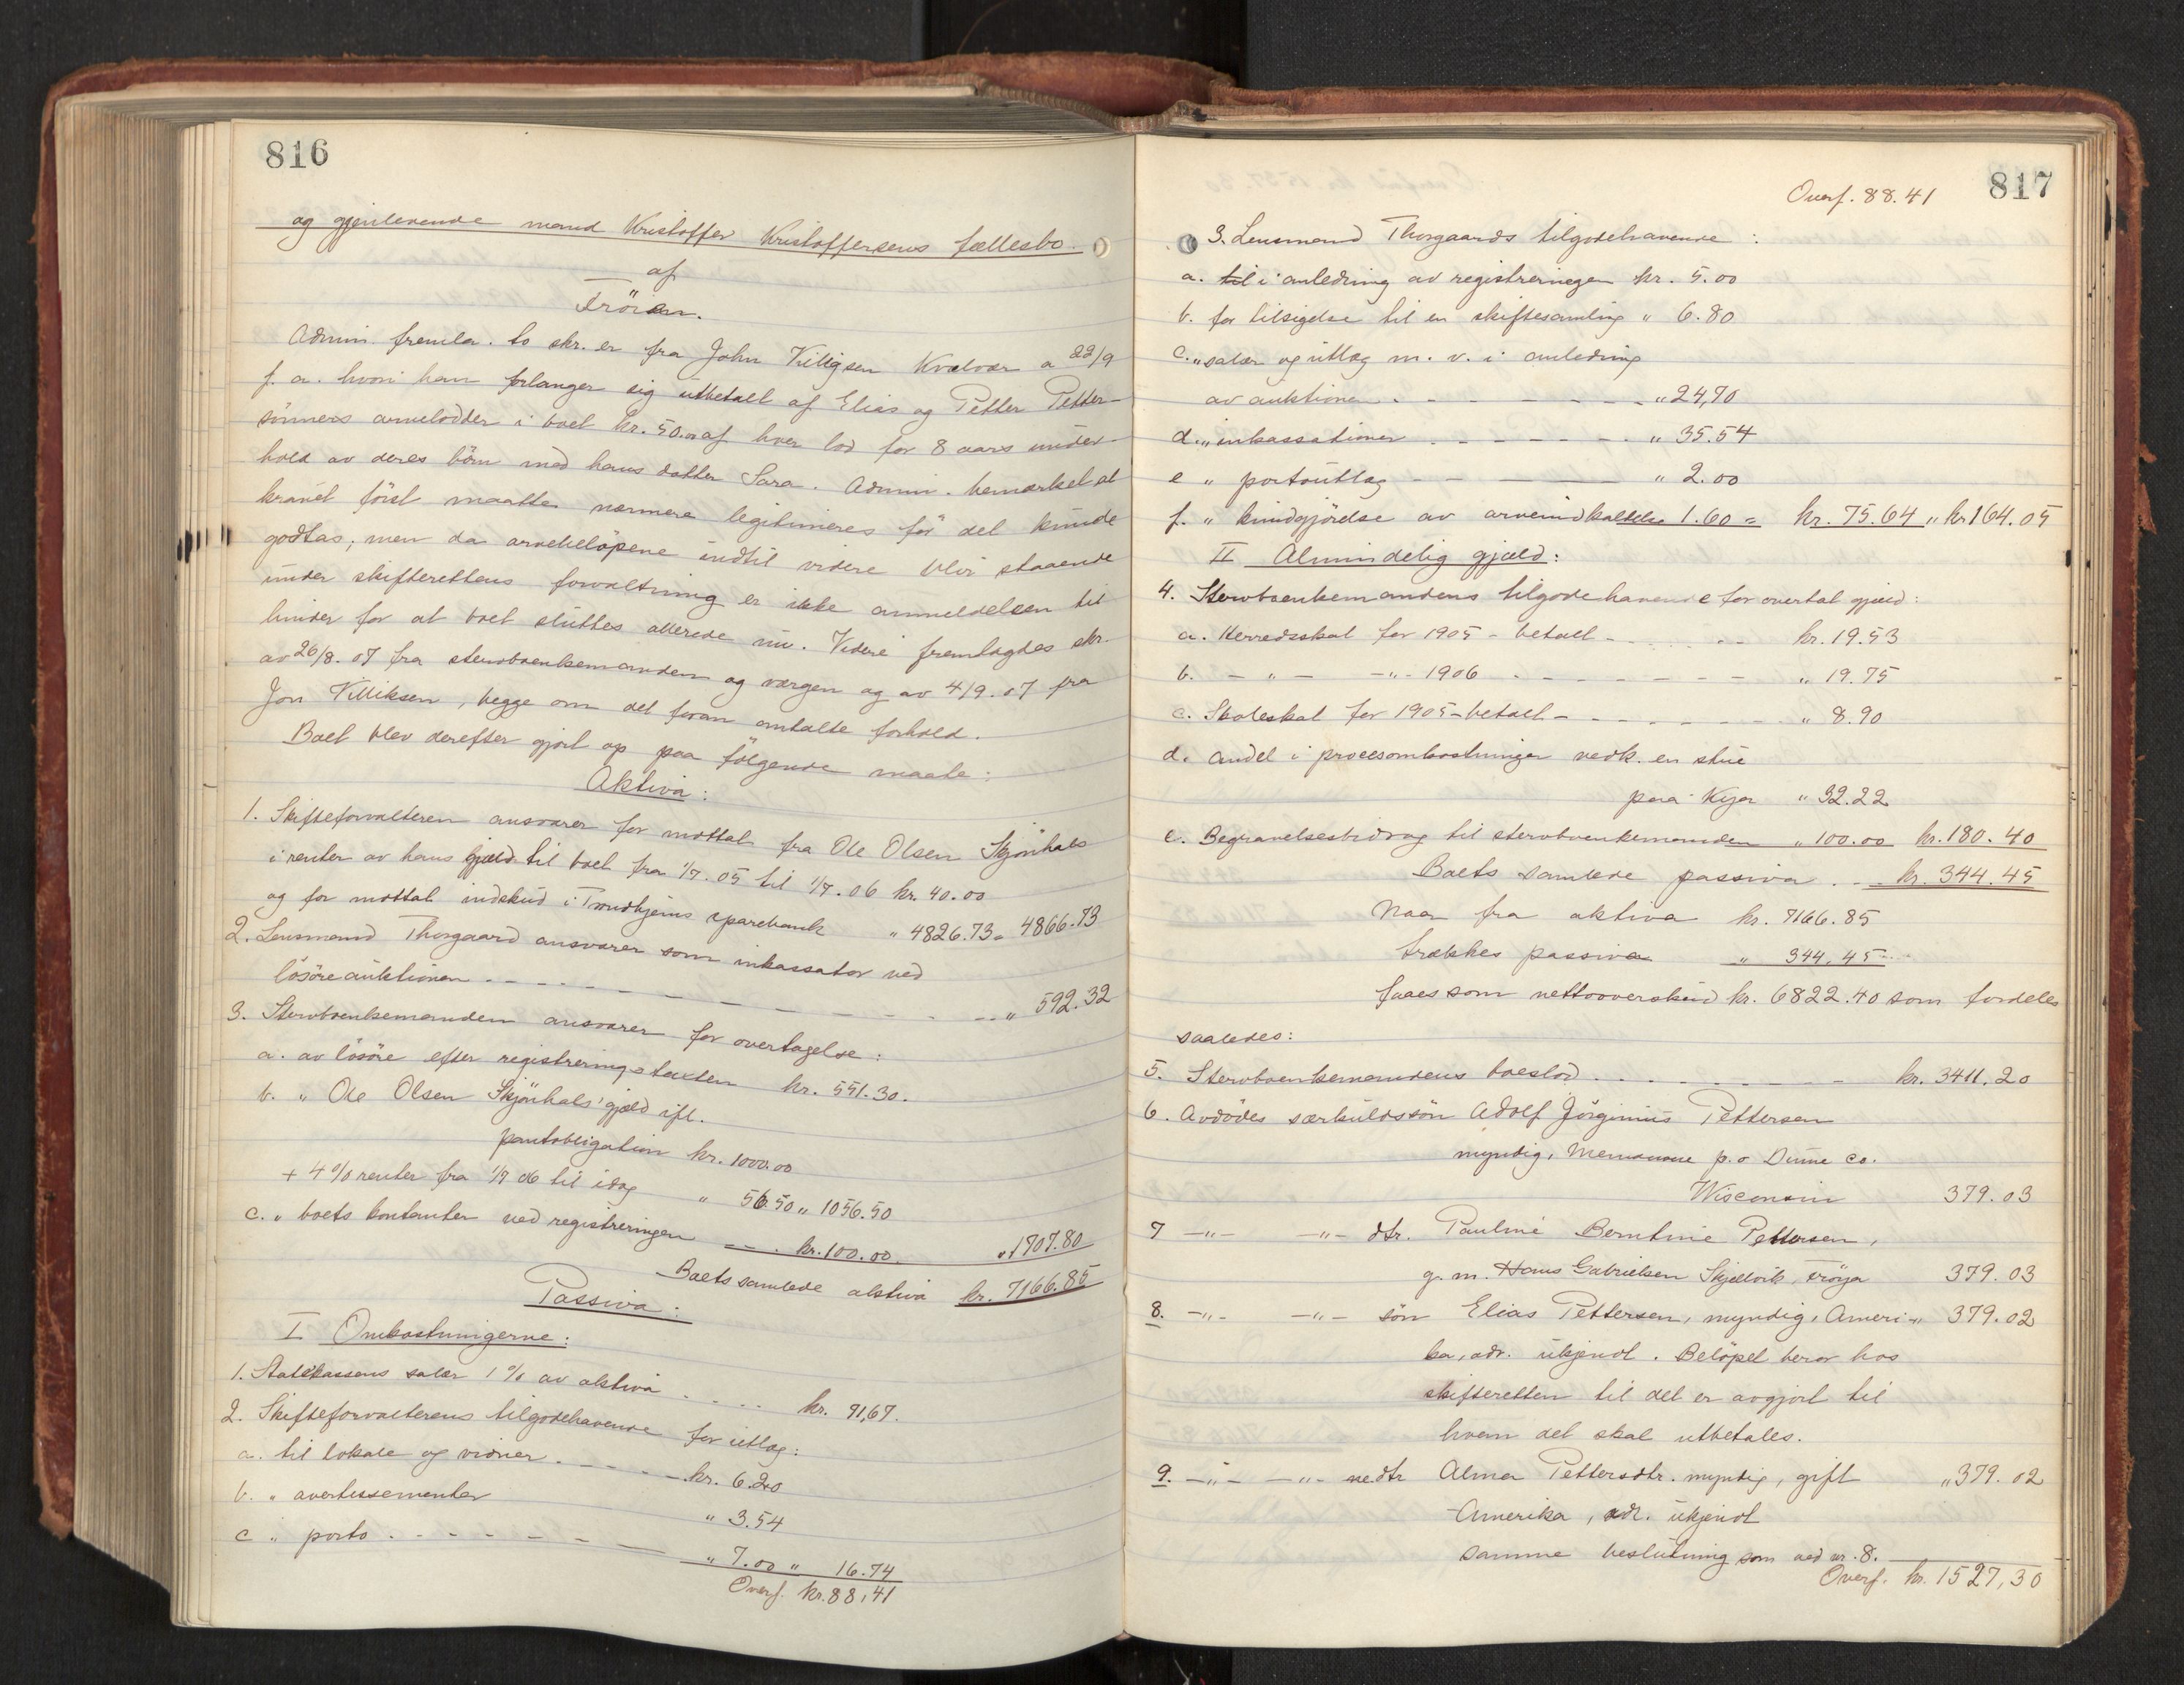 816
og gjenlevende mand Kristoffer Kristoffersens fællesbo
af
Fröien.
Admin. fremla. to skr. er fra John Villigsen Kvalvær a 22/9
f. a. hvori han forlanger sig utbetalt af Elias og Petter Petter-
sönners arvelodder i boet kr. 50.00 af hver lod for 8 aars under-
hold av deres börn med hans datter Sara. Admin. bemærket at
kravet först maatte nærmere legitimeres för det kunde
godtas; men da arvebelöpene indtil videre blir staaende
under skifterettens forvaltning er ikke anmeldelsen til
hinder for at boet sluttes allerede nu. Videre fremlagdes skr.
av 26/8. 07 fra stervboenkemanden og værgen og av 4/9. 07 fra
Jon Villiksen, begge om det foran omtalte forhold.
Boet blev derefter gjort op paa fölgende maate:
Aktiva:
1. Skifteforvalteren ansvarer for mottat fra Ole Olsen Skjönhals
i renter av hans gjæld til boet fra 1/7. 05 til 1/7. 06 kr. 40.00
og for mottat indskud i Trondhjems sparebank " 4826.73 = 4866.73
2. Lensmand Thorgaard ansvarer som inkassator ved
lösöreauktionen - - - - " 592.32
3. Stervboenkemanden ansvarer for overtagelse:
a. av lösöre efter registreringstaxten kr. 551.30.
b. " Ole Olsen Skjönhals' gjæld ifl.
pantobligation kr. 1000.00
+ 4 % renter fra 1/7 06 til idag " 56.50 " 1056.50
c. " boets kontanter ved registreringen - - . kr. 100.00. " 1707.80
Boets samlede aktiva kr. 7166.85
Passiva:
I Omkostningerne:
1. Statskassens salær 1 % av aktiva . . . . kr. 71,67.
2. Skifteforvalterens tilgodehavende for utlæg:
a. til lokale og vidner . - - - - kr. 6.20
b. " avertissementer " 3.54
c " porto . - - - - - - " 7.00 " 16.74
Overf. kr. 88,41
817
Overf. 88.41
3. Lensmand Thorgaards tilgodehavende:
a. til i anledning av registreringen kr. 5.00
b. for tilsigelse til en skiftesamling " 6.80
c. " salær og utlæg m. v. i anledning
av auktionen . - - - - - - - " 24,70
d. " inkassationer - - - - - - . " 35.54
e " portoutlæg - - - - " 2.00
f. " kundgjördelse av arveindkaldelse 1.60 = kr. 75.64 " kr 164.05
II Almindelig gjæld:
4. Stervboenkemandens tilgodehavende for overtat gjæld:
a. Herredsskat for 1905 - betalt - - - - kr. 19.53
b. - " - - " - 1906 - - - - - - - - " 19.75
c. Skoleskat for 1905 - betalt - - - - - - - " 8.90
d. Andel i procesomkostninger vedk. en stue
paa Kya " 32.22
e. Begravelsesbidrag til stervboenkemanden " 100.00 kr. 180.40
Boets samlede passiva . . . kr. 344.45
Naar fra aktiva kr. 7166.85
trækkes passiva " 344.45
faaes som nettooverskud kr. 6822.40 som fordeles
saaledes:
5. Stervboenkemandens boeslod . - - - - - - - kr. 3411.20
6. Avdödes særkuldssön Adolf Jörginius Pettersen
myndig, p. o Dunn Co.
Wisconsin 379.03
7 - " - - " - dtr. Pauline Berntine Pettersen,
g. m. Hans Gabrielsen Skjelvik, Fröya 379.03
8. - " - - " - sön Elias Pettersen, myndig, Ameri- " 379.02
ka, adr. ukjendt. Belöpet beror hos
skifteretten til det er avgjort til
hvem det skal utbetales.
9. - " - - " - dtr Alma Pettersdtr. myndig, gift " 379.02
Amerika, adr. ukjendt
samme beslutning som ved nr. 8.
Overf. kr. 1527,30